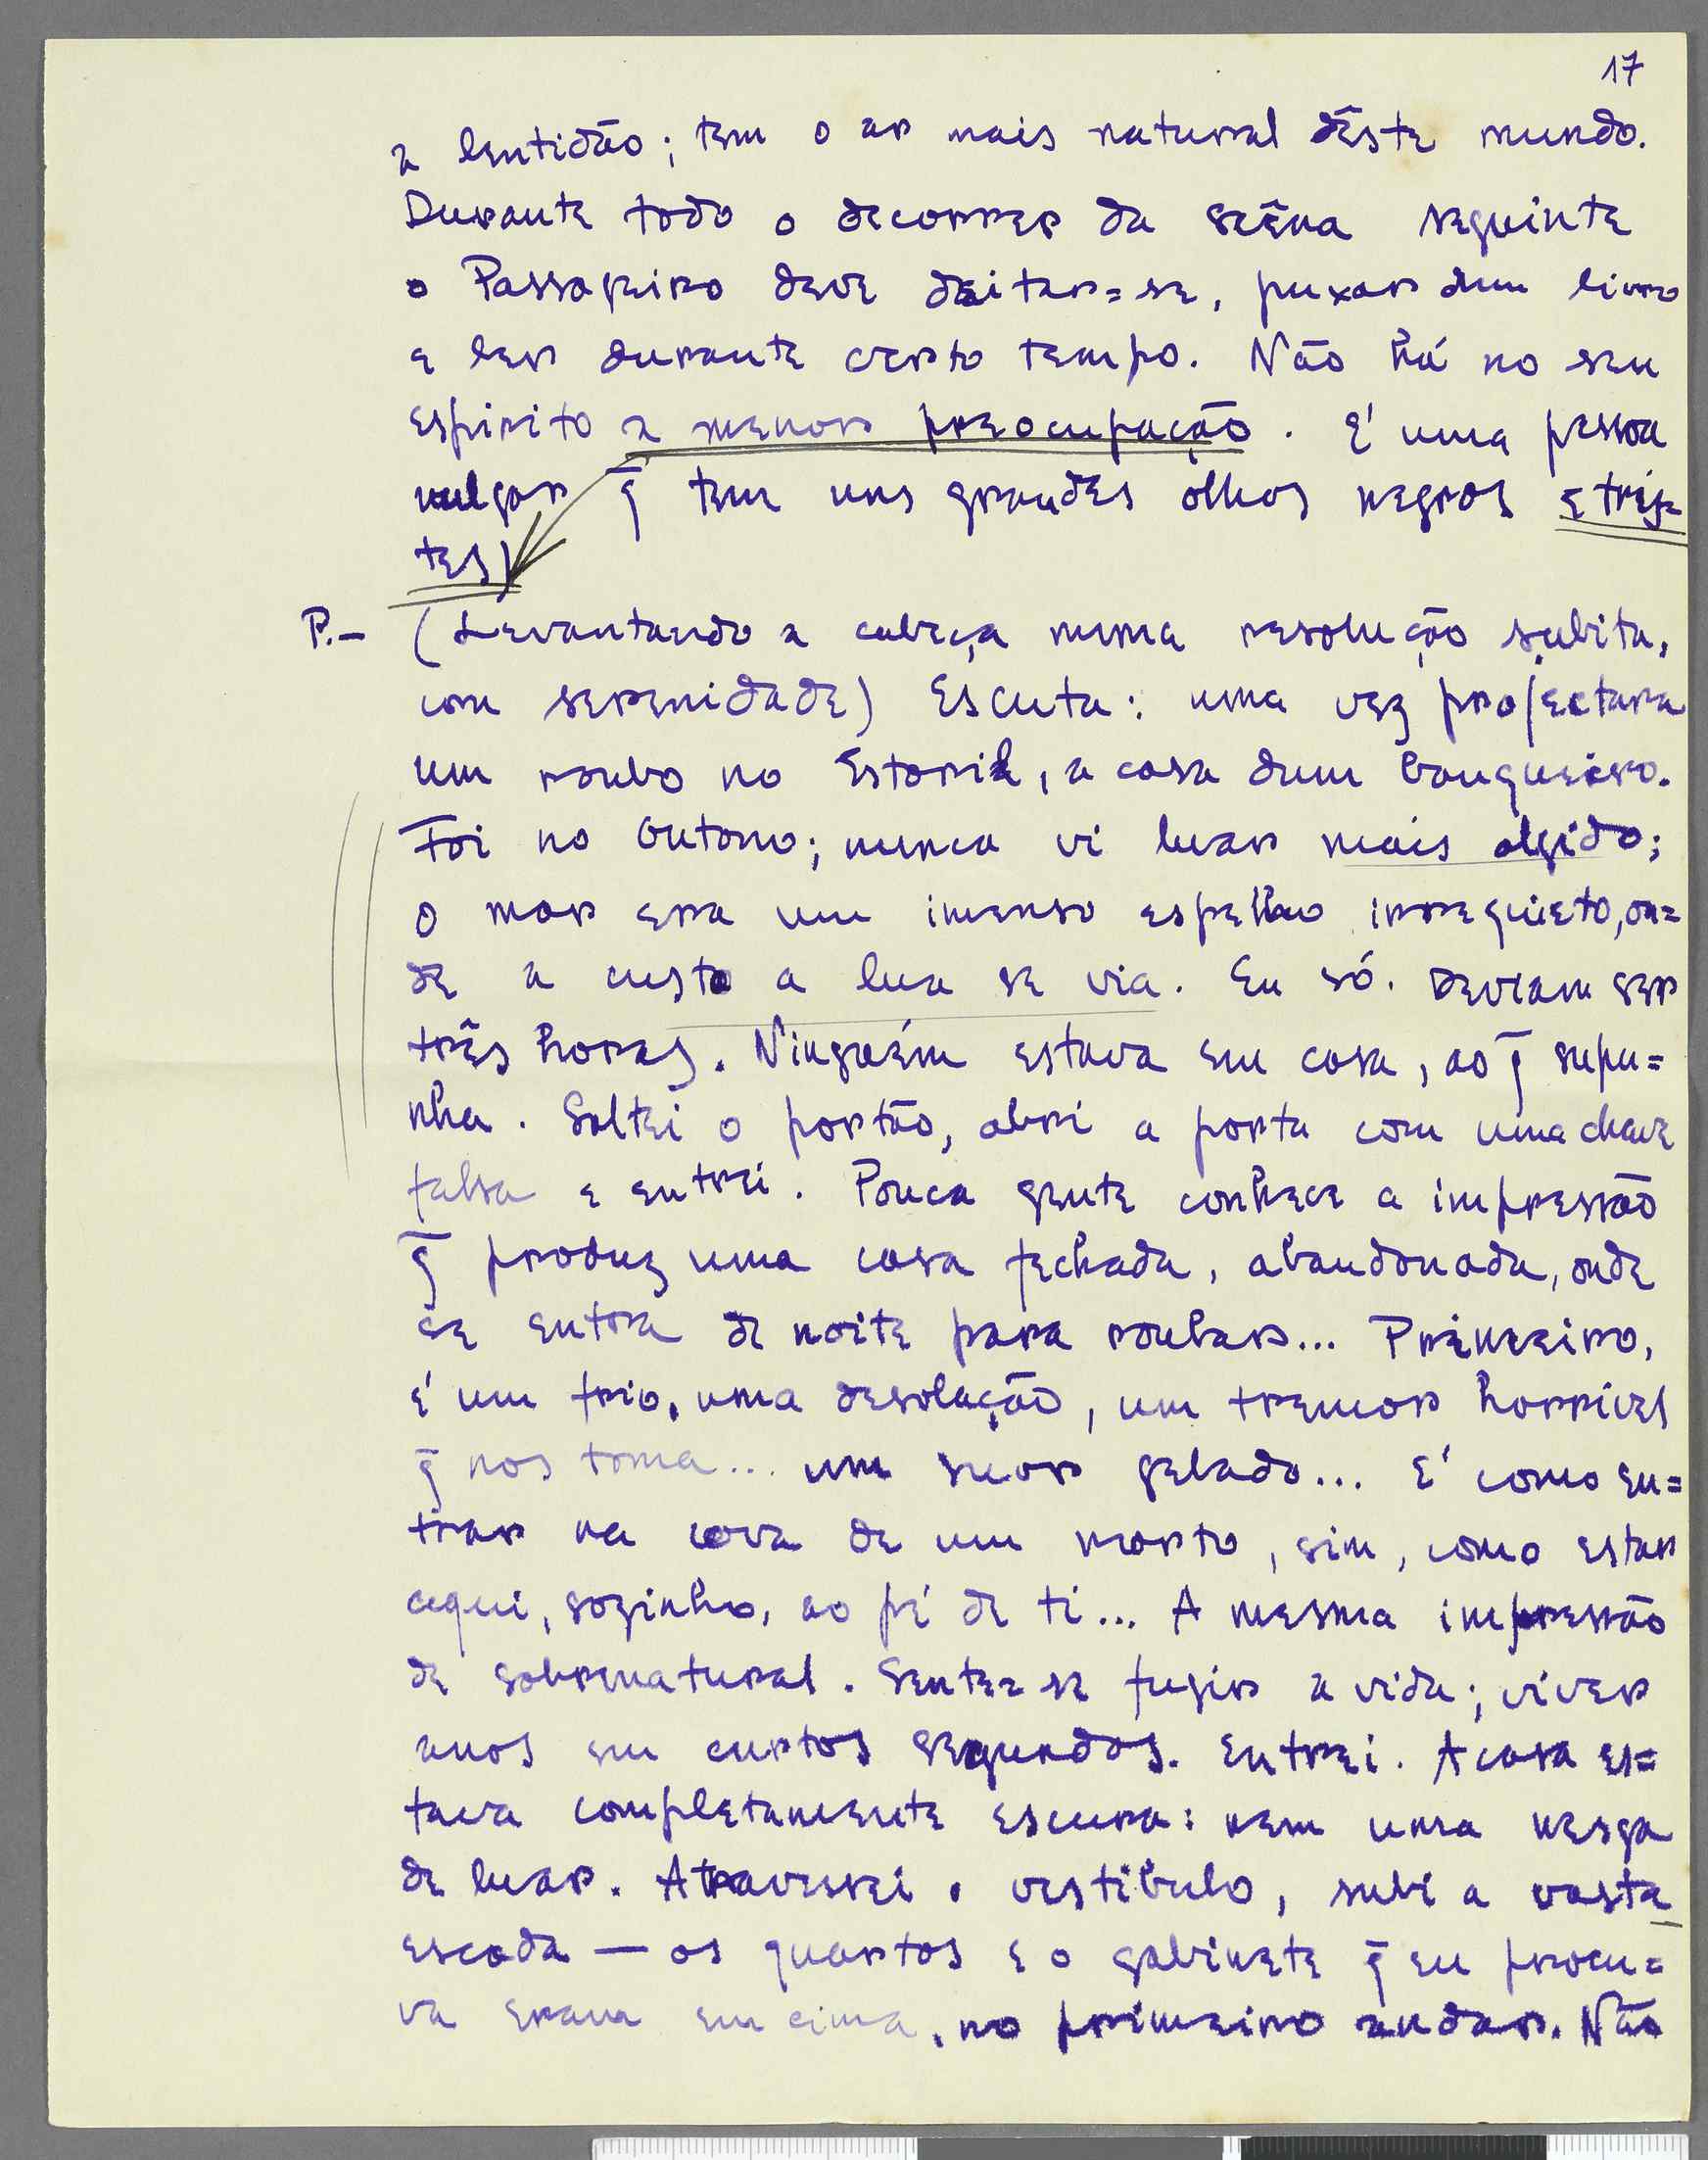 17
a lentidão; tem o ar mais natural dêste mundo.
Durante todo o decorrer da scêna seguinte
o Passageiro deve deitar=se, puxar dum livro
e ler durante certo tempo. Não há no seu
espirito a menor preocupação. É uma pessoa
vulgar q̄ tem uns grandes olhos negros e tris=
tes)
P.– (Levantando a cabeça numa resolução subita,
com serenidade) Escuta: uma vez projectara
um roubo no Estoril, a casa dum banqueiro.
Foi no Outono; nunca vi luar mais algido;
o mar era um imenso espelho irrequieto, on=
de a custo a lua se via. Eu só. Deviam ser
três horas. Ninguém estava em casa, ao q̄ supu=
nha. Saltei o portão, abri a porta com uma chave
falsa e entrei. Pouca gente conhece a impressão
q̄ produz uma casa fechada, abandonada, onde
se entra de noite para roubar... Primeiro,
é um frio, uma desolação, um tremor horrivel
q̄ nos toma... um suor gelado... É como en=
trar na cova de um morto, sim, como estar
aqui, sozinho, ao pé de ti... A mesma impressão
de sobrenatural. Sente=se fugir a vida; viver
anos em curtos segundos. Entrei. A casa es=
tava completamente escura: nem uma nesga
de luar. Atravessei o vestibulo, subi a vasta
escada — os quartos e o gabinete q̄ eu procu=
va eram em cima, no primeiro andar. Não